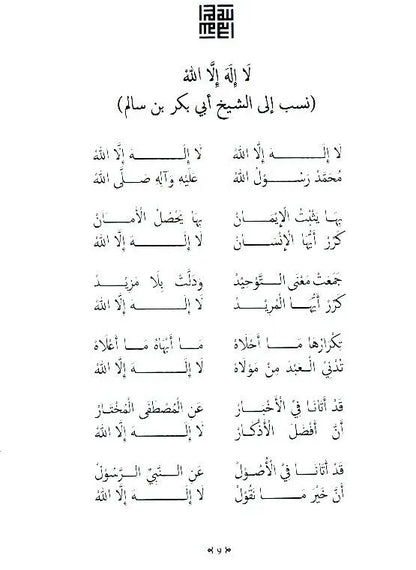 لَا إِلَهَ إِلَّا اللهُ
(نسب إلى الشيخ أبي بكر بن سالم)
لَا إِلَـــــهَ إِلَّا اللهُ لَا إِلَـــــهَ إِلَّا اللهُ
مُحَمَّدْ رَسُـوْلُ اللهُ عَلَيْهِ وَآلِهِ صَلَّى اللهُ
بِهَا يَثْبُتُ الْإِيْمَـانْ بِهَا يَحْصُلُ الْأَمَـانْ
كَرِّرْ أَيُّهَا الْإِنْسَـانْ لَا إِلَـــــهَ إِلَّا اللهُ
جَمَعَتْ مَعْنَى التَّـوْحِيْدْ وَدَلَّتْ بِلَا مَزِيْـدْ
كَرِّرْ أَيُّهَـا الْمُرِيْـدْ لَا إِلَـــــهَ إِلَّا اللهُ
تِكْرَارُهَا مَـــا أَحْلَاهْ مَـا أَبْهَاهْ مَـا أَعْلَاهْ
تُدْنِيْ الْـعَبْـدَ مِنْ مَوْلَاهْ لَا إِلَـــــهَ إِلَّا اللهُ
قَـدْ أَتَانَا فِيْ الْأَخْبَـارْ عَنِ الْمُصْطَفَى الْمُخْتَارْ
أَنَّ أَفْضَـلَ الْأَذْكَـارْ لَا إِلَـــــهَ إِلَّا اللهُ
قَدْ أَتَانَـا فِيْ الْأُصُوْلْ عَنِ النَّـبِيِّ الـرَّسُوْلْ
أَنَّ خَيْرَ مَـــا نَقُوْلْ لَا إِلَـــــهَ إِلَّا اللهُ
٩